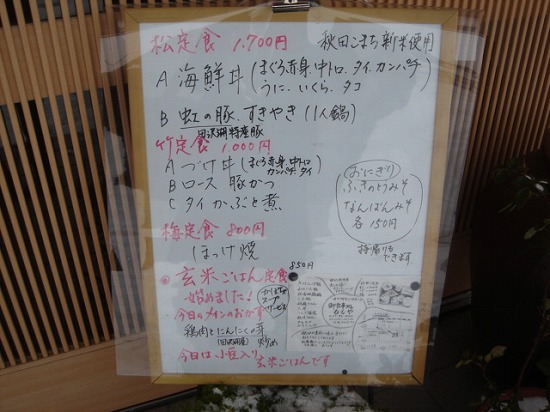 松定食 1,700円
秋田こまち新米使用
A 海鮮丼(まぐろ赤身、中トロ、タイ、カンパチ
うに、いくら、タコ
B 虹の豚、すきやき(1人鍋)
田沢湖特産豚
竹定食 1,000円
A づけ丼(まぐろ赤身、中トロ
カンパチ、タイ)
B ロース豚かつ
C タイかぶと煮
おにぎり
ふきのとうみそ
なんばんみそ
各150円
持帰りも
できます
梅定食 800円
ほっけ焼
850円
玄米ごはん定食
始めました!
スープ
サービス
今日のメインのおかず
鶏肉とにんにくの芽
炒め
今日は小豆入り
玄米ごはんです